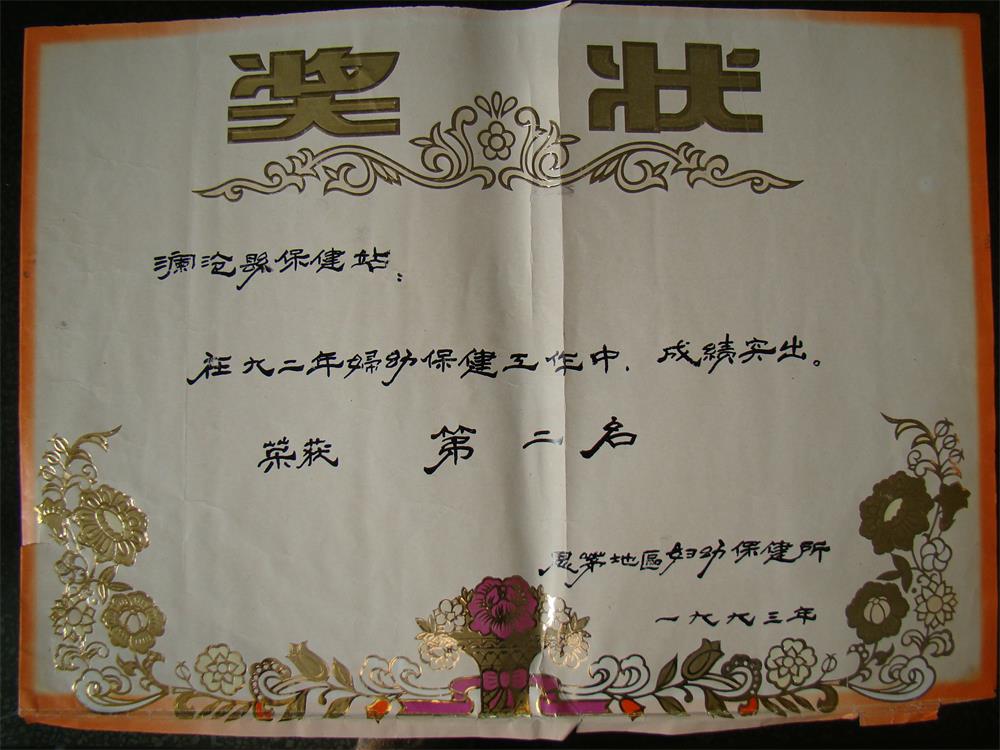 奖状
澜沧縣保健站：
在九二年婦幼保健工作中、成績突出。
荣获 第二名
思茅地區妇幼保健所
一九九三年